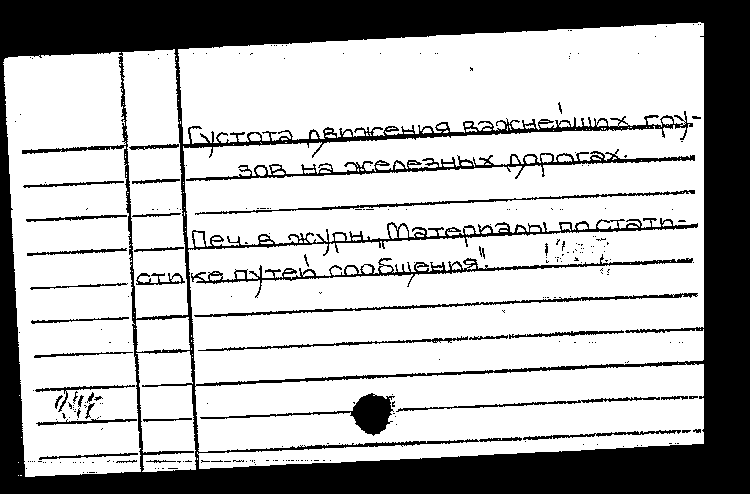 Густота движения важнейших гру-
зов на железных дорогах.
Печ. в журн. „Материалы по стати-
стике путей сообщения".